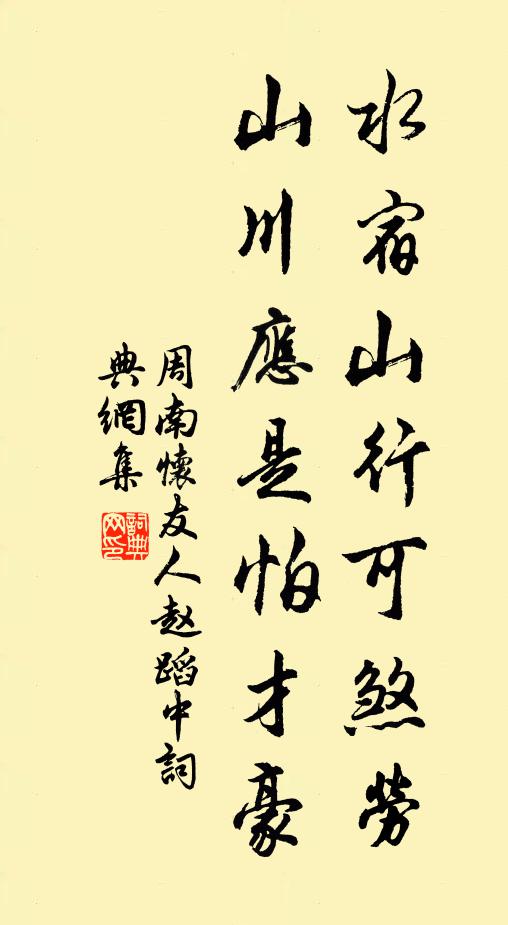 水宿山行可煞勞
山川應是怕才豪
周南懷友人赵蹈中詞
典網集
詞典
网印